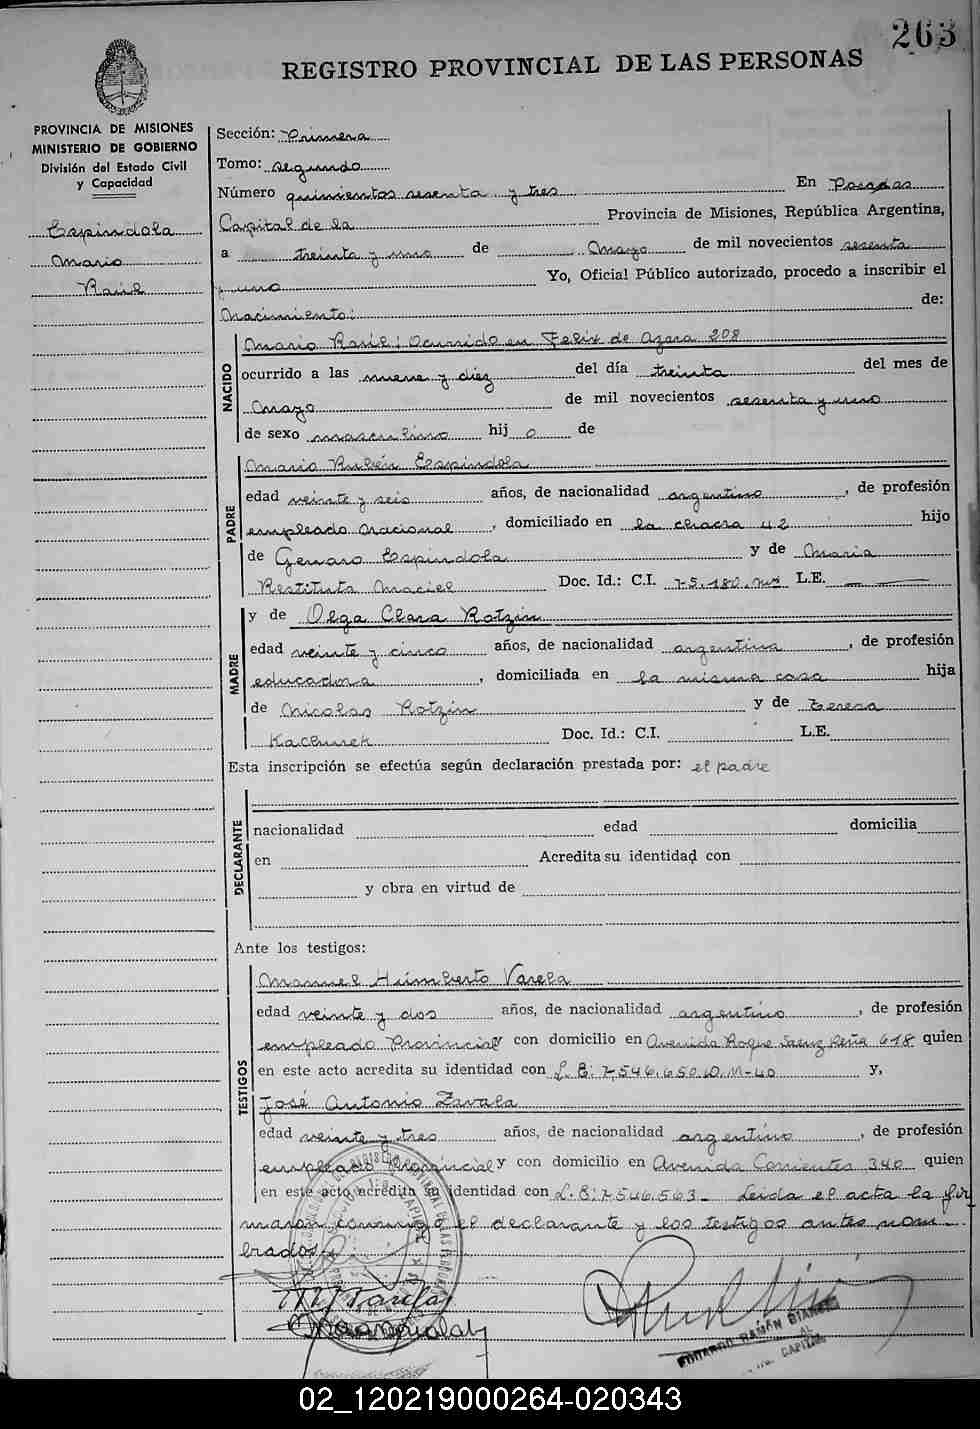 263
REGISTRO PROVINCIAL DE LAS PERSONAS
PROVINCIA DE MISIONES
MINISTERIO DE GOBIERNO
División del Estado Civil
y Capacidad
Espindola
Mario
Raúl
Sección: Primera
Tomo: segundo
Número quinientos sesenta y tres En Posadas
Capital de la Provincia de Misiones, República Argentina,
a treinta y uno de Mayo de mil novecientos sesenta
y uno Yo, Oficial Público autorizado, procedo a inscribir el
Nacimiento: de:
NACIDO
Mario Raúl: Ocurrido en Felix de Azara 208
ocurrido a las nueve y diez del día treinta del mes de
Mayo de mil novecientos sesenta y uno
de sexo masculino hij o de
PADRE
Mario Rubén Espindola
edad veinte y seis años, de nacionalidad argentino, de profesión
empleado Nacional, domiciliado en la chacra 42 hijo
de Genaro Espindola y de Maria
Restituta Maciel Doc. Id.: C.I. 75.180. L.E.
MADRE
y de Olga Clara Rotzin
edad veinte y cinco años, de nacionalidad argentina, de profesión
educadora, domiciliada en la misma casa hija
de Nicolas Rotzin y de Teresa
Kachurek Doc. Id.: C.I. L.E.
Esta inscripción se efectúa según declaración prestada por: el padre
DECLARANTE
nacionalidad edad domicilia
en Acredita su identidad con
y obra en virtud de
Ante los testigos:
TESTIGOS
Manuel Humberto Varela
edad veinte y dos años, de nacionalidad argentino, de profesión
empleado Provincial y con domicilio en Avenida Roque Saenz Peña 618 quien
en este acto acredita su identidad con L.E: 7.546.650.D.M-40 y,
José Antonio Zavala
edad veinte y tres años, de nacionalidad argentino, de profesión
empleado Provincial y con domicilio en Avenida Corrientes 340 quien
en este acto acredita su identidad con L.E: 7.546.563- Leida el acta la fir
maron conmigo el declarante y los testigos antes nom
brados.
EDUARDO RAMÓN
CAPITAL
02_120219000264-020343